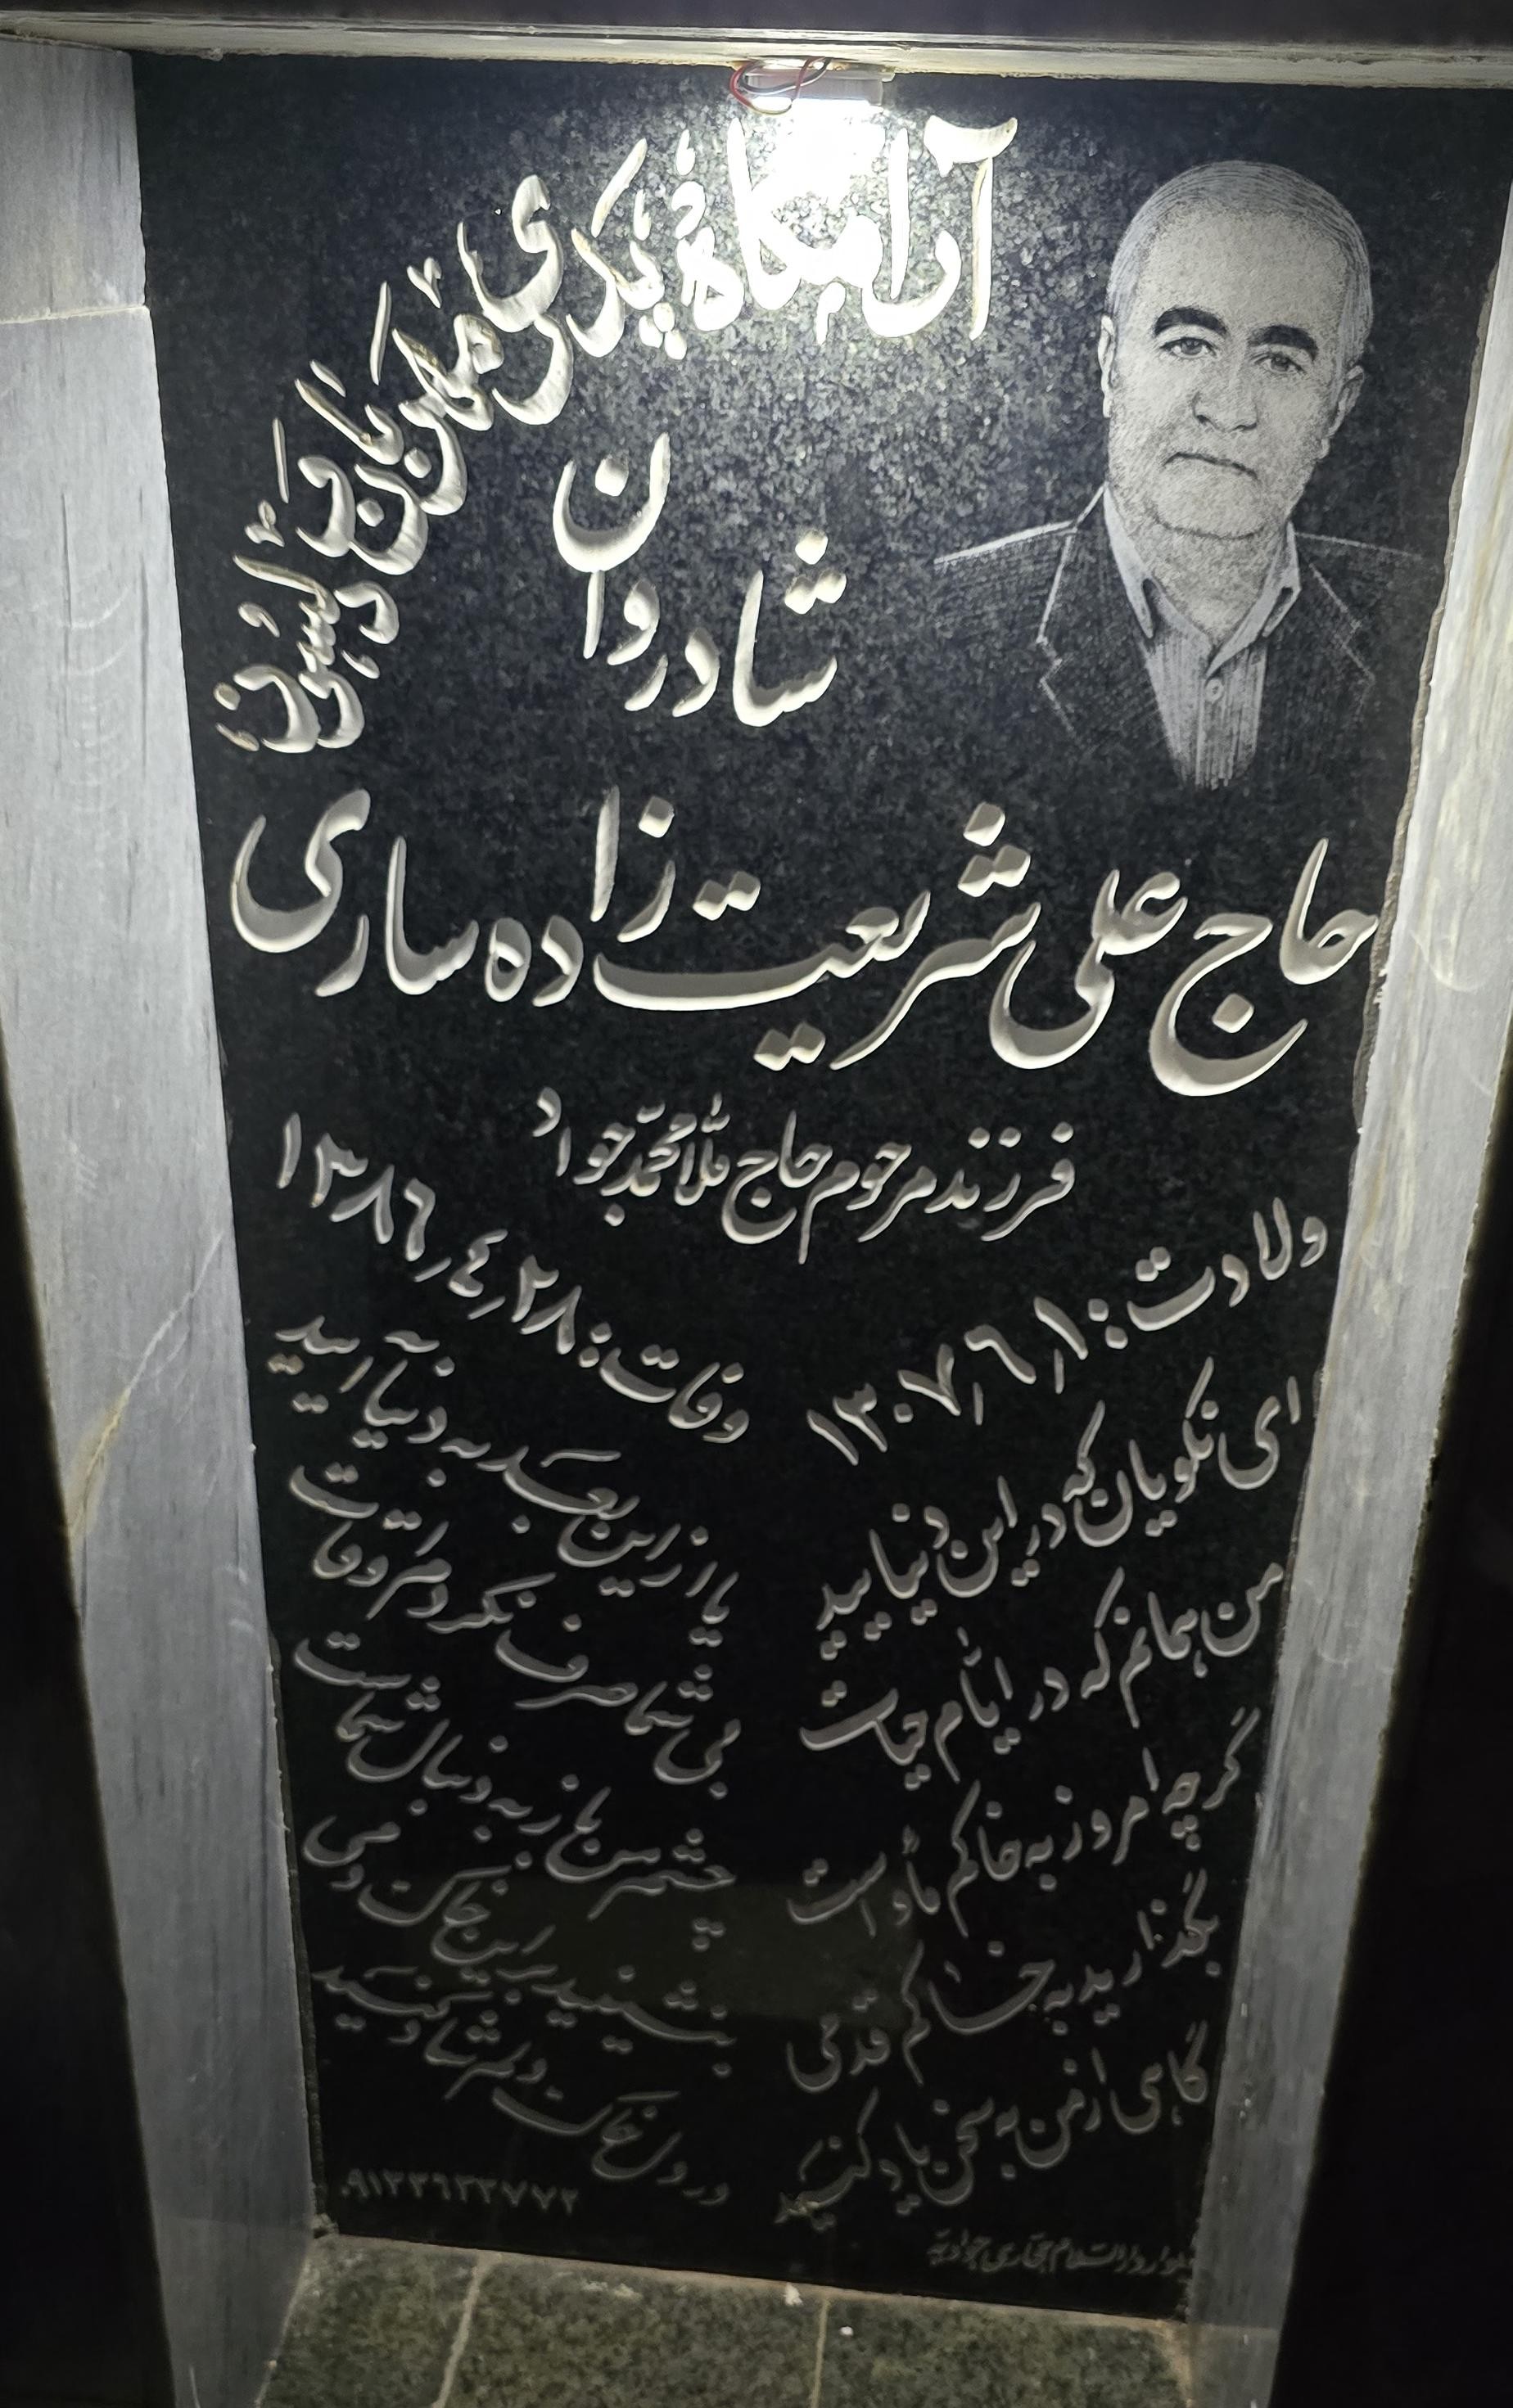 آرامگاه پدری مهربان و همسری دلسوز
شادروان
حاج علی شریعت زاده ساری
فرزند مرحوم حاج ملا محمد جواد
ولادت: ۱۳۰۷/۶/۱
وفات: ۱۳۸۶/۴/۲۸
ای نکویان که در این دنیایید
یا از این بعد به دنیا آیید
من همانم که در ایام حیات
بی شما صرف نکردم اوقات
گرچه امروز به خاکم مأواست
چشم من باز به دنبال شماست
بگذارید به خاکم قدمی
بنشینید بر این خاک دمی
گاهی از من به سخن یاد کنید
در دل خاک دلم شاد کنید
بلوار دارالسلام حجاری جوادیه
۰۹۱۳۳۶۳۳۷۷۲